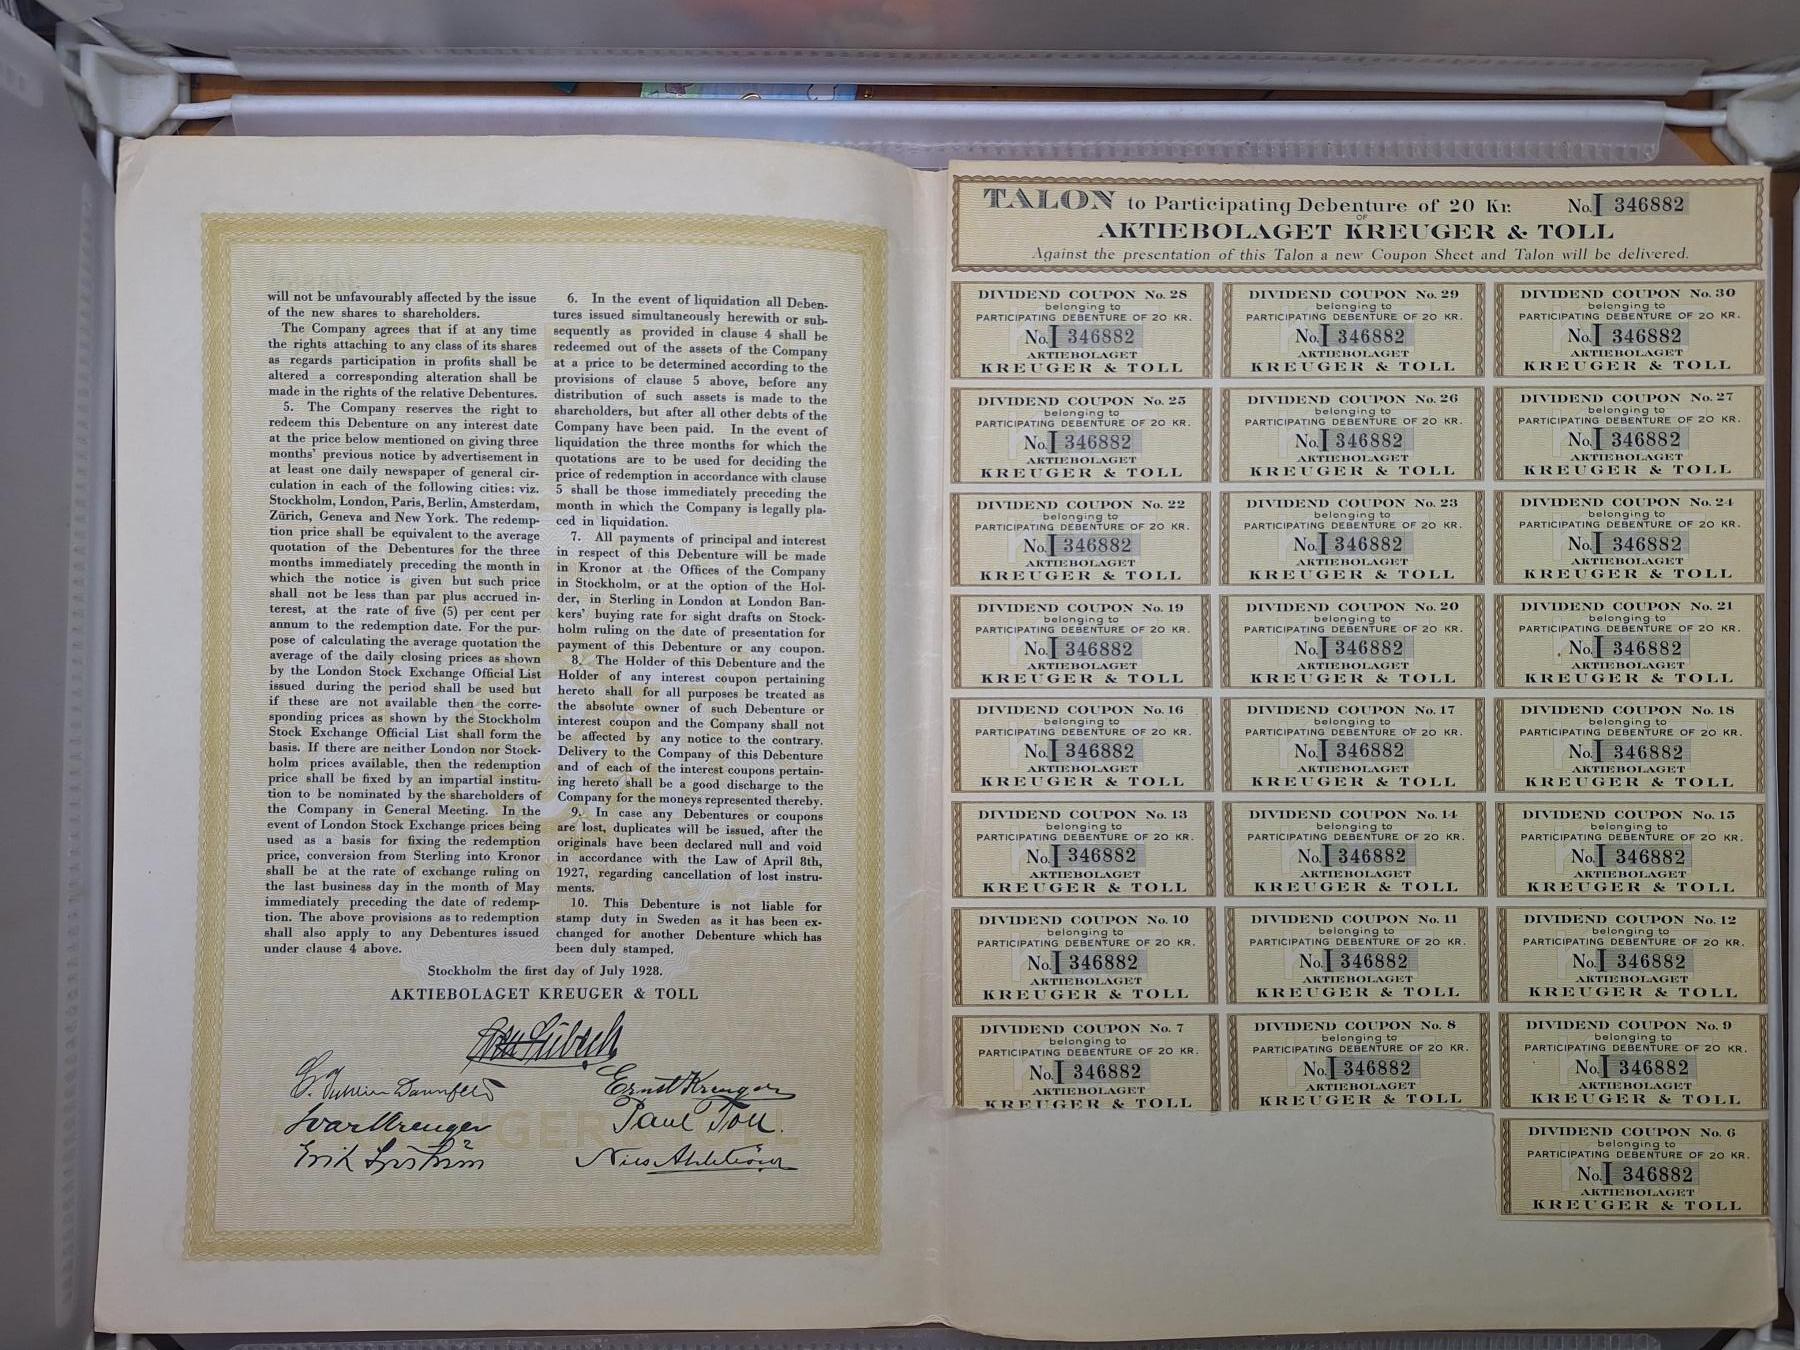 will not be unfavourably affected by the issue
of the new shares to shareholders.
The Company agrees that if at any time
the rights attaching to any class of its shares
as regards participation in profits shall be
altered a corresponding alteration shall be
made in the rights of the relative Debentures.
5. The Company reserves the right to
redeem this Debenture on any interest date
at the price below mentioned on giving three
months' previous notice by advertisement in
at least one daily newspaper of general cir-
culation in each of the following cities: viz.
Stockholm, London, Paris, Berlin, Amsterdam,
Zürich, Geneva and New York. The redemp-
tion price shall be equivalent to the average
quotation of the Debentures for the three
months immediately preceding the month in
which the notice is given but such price
shall not be less than par plus accrued in-
terest, at the rate of five (5) per cent per
annum to the redemption date. For the pur-
pose of calculating the average quotation the
average of the daily closing prices as shown
by the London Stock Exchange Official List
issued during the period shall be used but
if these are not available then the corre-
sponding prices as shown by the Stockholm
Stock Exchange Official List shall form the
basis. If there are neither London nor Stock-
holm prices available, then the redemption
price shall be fixed by an impartial institu-
tion to be nominated by the shareholders of
the Company in General Meeting. In the
event of London Stock Exchange prices being
used as a basis for fixing the redemption
price, conversion from Sterling into Kronor
shall be at the rate of exchange ruling on
the last business day in the month of May
immediately preceding the date of redemp-
tion. The above provisions as to redemption
shall also apply to any Debentures issued
under clause 4 above.
6. In the event of liquidation all Deben-
tures issued simultaneously herewith or sub-
sequently as provided in clause 4 shall be
redeemed out of the assets of the Company
at a price to be determined according to the
provisions of clause 5 above, before any
distribution of such assets is made to the
shareholders, but after all other debts of the
Company have been paid. In the event of
liquidation the three months for which the
quotations are to be used for deciding the
price of redemption in accordance with clause
5 shall be those immediately preceding the
month in which the Company is legally pla-
ced in liquidation.
7. All payments of principal and interest
in respect of this Debenture will be made
in Kronor at the Offices of the Company
in Stockholm, or at the option of the Hol-
der, in Sterling in London at London Ban-
kers' buying rate for sight drafts on Stock-
holm ruling on the date of presentation for
payment of this Debenture or any coupon.
8. The Holder of this Debenture and the
Holder of any interest coupon pertaining
hereto shall for all purposes be treated as
the absolute owner of such Debenture or
interest coupon and the Company shall not
be affected by any notice to the contrary.
Delivery to the Company of this Debenture
and of each of the interest coupons pertain-
ing hereto shall be a good discharge to the
Company for the moneys represented thereby.
9. In case any Debentures or coupons
are lost, duplicates will be issued, after the
originals have been declared null and void
in accordance with the Law of April 8th,
1927, regarding cancellation of lost instru-
ments.
10. This Debenture is not liable for
stamp duty in Sweden as it has been ex-
changed for another Debenture which has
been duly stamped.
Stockholm the first day of July 1928.
AKTIEBOLAGET KREUGER & TOLL
Ernst Kreuger
Ivar Kreuger
Paul Toll.
TALON to Participating Debenture of 20 Kr. No. I 346882
OF
AKTIEBOLAGET KREUGER & TOLL
Against the presentation of this Talon a new Coupon Sheet and Talon will be delivered.
DIVIDEND COUPON No. 28
belonging to
PARTICIPATING DEBENTURE OF 20 KR.
No. I 346882
AKTIEBOLAGET
KREUGER & TOLL
DIVIDEND COUPON No. 29
belonging to
PARTICIPATING DEBENTURE OF 20 KR.
No. I 346882
AKTIEBOLAGET
KREUGER & TOLL
DIVIDEND COUPON No. 30
belonging to
PARTICIPATING DEBENTURE OF 20 KR.
No. I 346882
AKTIEBOLAGET
KREUGER & TOLL
DIVIDEND COUPON No. 25
belonging to
PARTICIPATING DEBENTURE OF 20 KR.
No. I 346882
AKTIEBOLAGET
KREUGER & TOLL
DIVIDEND COUPON No. 26
belonging to
PARTICIPATING DEBENTURE OF 20 KR.
No. I 346882
AKTIEBOLAGET
KREUGER & TOLL
DIVIDEND COUPON No. 27
belonging to
PARTICIPATING DEBENTURE OF 20 KR.
No. I 346882
AKTIEBOLAGET
KREUGER & TOLL
DIVIDEND COUPON No. 22
belonging to
PARTICIPATING DEBENTURE OF 20 KR.
No. I 346882
AKTIEBOLAGET
KREUGER & TOLL
DIVIDEND COUPON No. 23
belonging to
PARTICIPATING DEBENTURE OF 20 KR.
No. I 346882
AKTIEBOLAGET
KREUGER & TOLL
DIVIDEND COUPON No. 24
belonging to
PARTICIPATING DEBENTURE OF 20 KR.
No. I 346882
AKTIEBOLAGET
KREUGER & TOLL
DIVIDEND COUPON No. 19
belonging to
PARTICIPATING DEBENTURE OF 20 KR.
No. I 346882
AKTIEBOLAGET
KREUGER & TOLL
DIVIDEND COUPON No. 20
belonging to
PARTICIPATING DEBENTURE OF 20 KR.
No. I 346882
AKTIEBOLAGET
KREUGER & TOLL
DIVIDEND COUPON No. 21
belonging to
PARTICIPATING DEBENTURE OF 20 KR.
No. I 346882
AKTIEBOLAGET
KREUGER & TOLL
DIVIDEND COUPON No. 16
belonging to
PARTICIPATING DEBENTURE OF 20 KR.
No. I 346882
AKTIEBOLAGET
KREUGER & TOLL
DIVIDEND COUPON No. 17
belonging to
PARTICIPATING DEBENTURE OF 20 KR.
No. I 346882
AKTIEBOLAGET
KREUGER & TOLL
DIVIDEND COUPON No. 18
belonging to
PARTICIPATING DEBENTURE OF 20 KR.
No. I 346882
AKTIEBOLAGET
KREUGER & TOLL
DIVIDEND COUPON No. 13
belonging to
PARTICIPATING DEBENTURE OF 20 KR.
No. I 346882
AKTIEBOLAGET
KREUGER & TOLL
DIVIDEND COUPON No. 14
belonging to
PARTICIPATING DEBENTURE OF 20 KR.
No. I 346882
AKTIEBOLAGET
KREUGER & TOLL
DIVIDEND COUPON No. 15
belonging to
PARTICIPATING DEBENTURE OF 20 KR.
No. I 346882
AKTIEBOLAGET
KREUGER & TOLL
DIVIDEND COUPON No. 10
belonging to
PARTICIPATING DEBENTURE OF 20 KR.
No. I 346882
AKTIEBOLAGET
KREUGER & TOLL
DIVIDEND COUPON No. 11
belonging to
PARTICIPATING DEBENTURE OF 20 KR.
No. I 346882
AKTIEBOLAGET
KREUGER & TOLL
DIVIDEND COUPON No. 12
belonging to
PARTICIPATING DEBENTURE OF 20 KR.
No. I 346882
AKTIEBOLAGET
KREUGER & TOLL
DIVIDEND COUPON No. 7
belonging to
PARTICIPATING DEBENTURE OF 20 KR.
No. I 346882
AKTIEBOLAGET
KREUGER & TOLL
DIVIDEND COUPON No. 8
belonging to
PARTICIPATING DEBENTURE OF 20 KR.
No. I 346882
AKTIEBOLAGET
KREUGER & TOLL
DIVIDEND COUPON No. 9
belonging to
PARTICIPATING DEBENTURE OF 20 KR.
No. I 346882
AKTIEBOLAGET
KREUGER & TOLL
DIVIDEND COUPON No. 6
belonging to
PARTICIPATING DEBENTURE OF 20 KR.
No. I 346882
AKTIEBOLAGET
KREUGER & TOLL